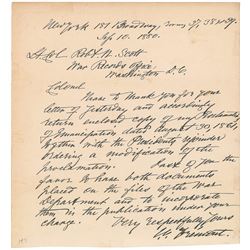 New York 187 Broadway, rooms 37, 38 & 39.
Sep 10. 1880.
Lt. Col Robt N. Scott
War Records Office
Washington D.C.
Colonel
I have to thank you for your
letter of yesterday and accordingly
return enclosed copy of my Proclamation
of Emancipation dated August 30, 1861,
together with the President's
ordering a modification of the
proclamation. I ask of you the
favor to have both documents
placed on the files of the War
department and to incorporate
them in the publication under your
charge.
Very respectfully yours
J.C. Fremont.